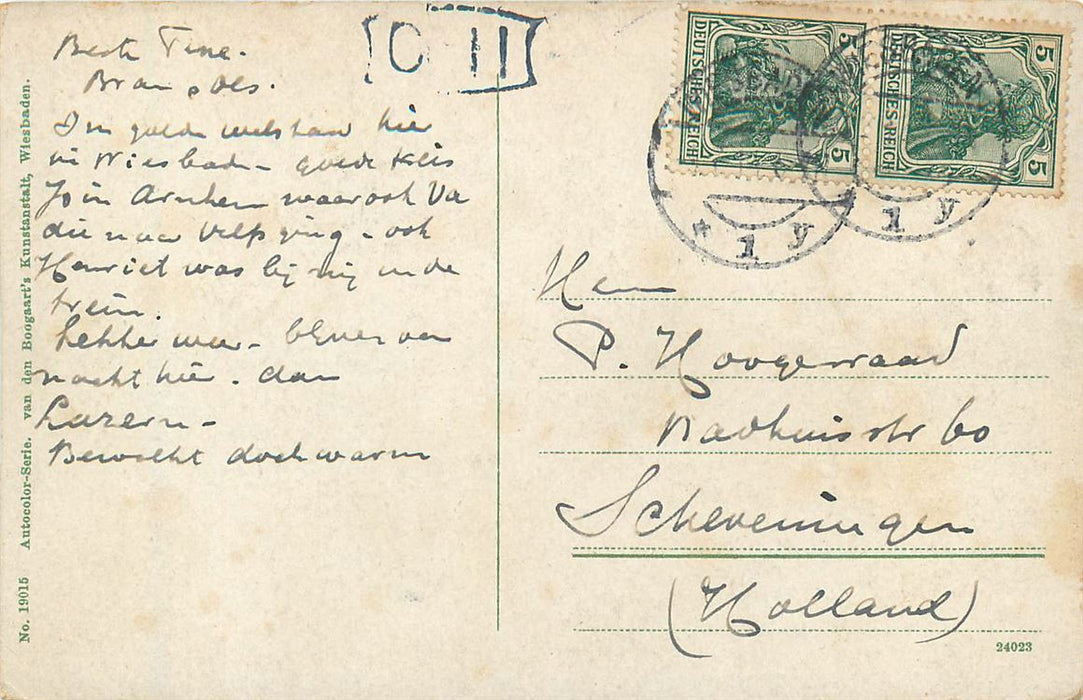 Beste Tine.
Bram, Ols.
In goede welstand hier
in Wiesbaden - goede reis
Jo in Arnhem waar ook Va
die naar Velp ging - ook
Henriet was bij mij in de
trein.
Lekker weer - blijven van
nacht hier. dan
Luzern -
Bewolkt doch warm
C II
DEUTSCHES REICH 5 5
DEUTSCHES REICH 5 5
* 1 y
1 y
Heer
P. Hoogenraad
Badhuisstr 60
Scheveningen
(Holland)
24023
No. 19015 Autocolor-Serie. van den Boogaart's Kunstanstalt, Wiesbaden.